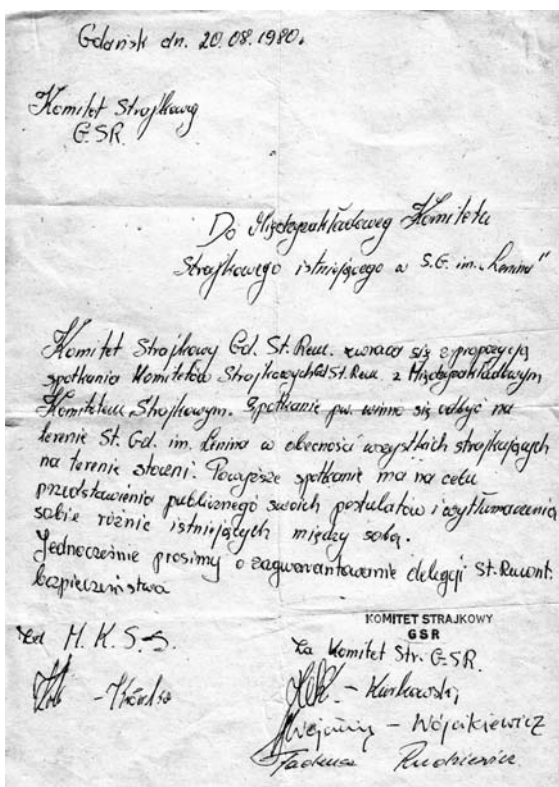 Gdańsk dn. 20.08.1980.
Komitet Strajkowy
G.S.R.
Do Międzyzakładowego Komitetu
Strajkowego istniejącego w S.G. im. „Lenina"
Komitet Strajkowy Gd. St. Rem. zwraca się z propozycją
spotkania Komitetów Strajkowych Gd St. Rem. z Międzyzakładowym
Komitetem Strajkowym. Spotkanie pw. winno się odbyć na
terenie St. Gd. im. Lenina w obecności wszystkich strajkujących
na terenie stoczni. Powyższe spotkanie ma na celu
przedstawienia publicznego swoich postulatów i wytłumaczenia
sobie różnic istniejących między sobą.
Jednocześnie prosimy o zagwarantowanie delegacji St. Remont.
bezpieczeństwa
M.K.S.S.
KOMITET STRAJKOWY
GSR
Za Komitet Str. G.SR.
- Kurkowski
- Wójcikiewicz
Tadeusz Rudziewicz